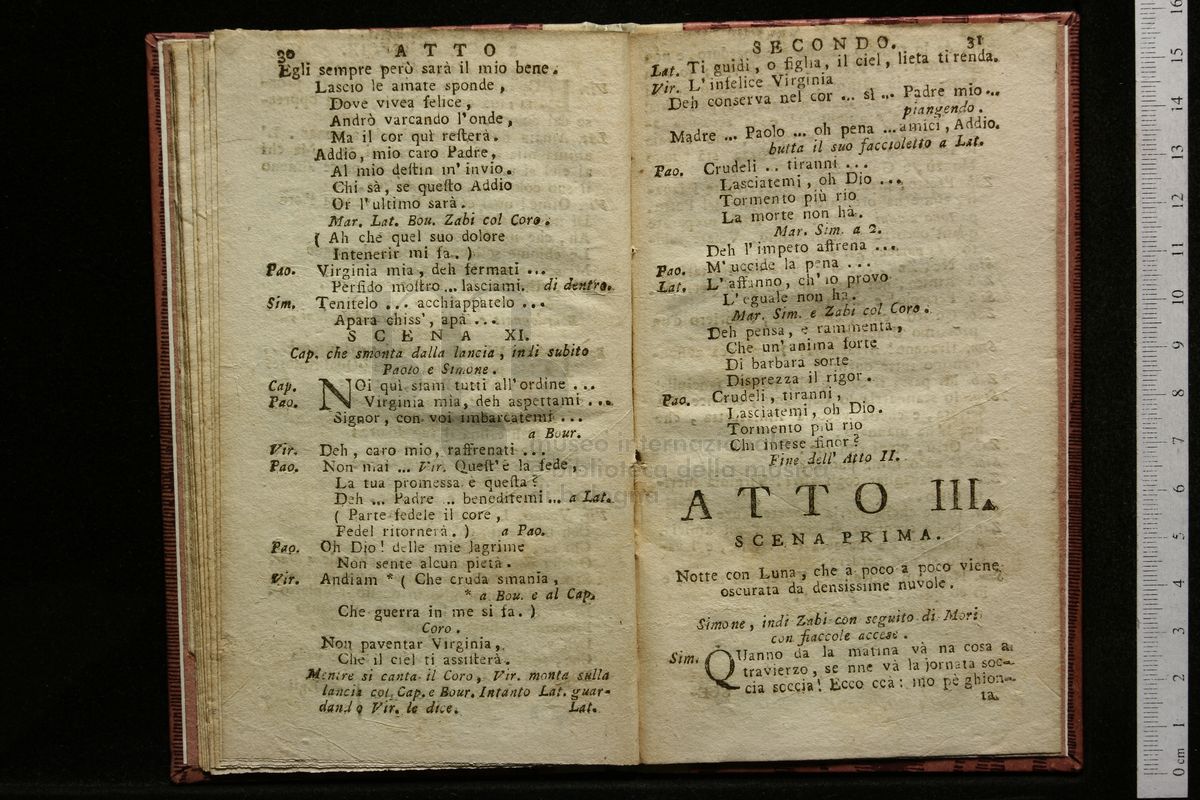 30 ATTO
Egli sempre però sarà il mio bene.
Lascio le amate sponde,
Dove vivea felice,
Andrò varcando l'onde,
Ma il cor quì resterà.
Addio, mio caro Padre,
Al mio destin m'invio.
Chi sà, se questo Addio
Or l'ultimo sarà.
Mar. Lat. Bou. Zabi col Coro.
( Ah che quel suo dolore
Intenerir mi fa. )
Pao. Virginia mia, deh fermati ...
Perfido mostro ... lasciami. di dentro.
Sim. Tenitelo ... acchiappatelo ...
Apara chiss', apa ...
SCENA XI.
Cap. che smonta dalla lancia, indi subito
Paolo e Simone.
Cap. NOi quì siam tutti all'ordine ...
Pao. Virginia mia, deh aspettami ...
Signor, con voi imbarcatemi ...
a Bour.
Vir. Deh, caro mio, raffrenati ...
Pao. Non mai ... Vir. Quest'è la fede,
La tua promessa è questa?
Deh ... Padre .. beneditemi ... a Lat.
( Parte fedele il core,
Fedel ritornerà. ) a Pao.
Pao. Oh Dio! delle mie lagrime
Non sente alcun pietà.
Vir. Andiam * ( Che cruda smania,
* a Bou. e al Cap.
Che guerra in me si fa. )
Coro.
Non paventar Virginia,
Che il ciel ti assisterà.
Mentre si canta il Coro, Vir. monta sulla
lancia col Cap. e Bour. Intanto Lat. guar-
dando Vir. le dice. Lat.
SECONDO. 31
Lat. Ti guidi, o figlia, il ciel, lieta ti renda.
Vir. L'infelice Virginia
Deh conserva nel cor ... sì ... Padre mio ...
piangendo.
Madre ... Paolo ... oh pena ... amici, Addio.
butta il suo faccioletto a Lat.
Pao. Crudeli .. tiranni ...
Lasciatemi, oh Dio ...
Tormento più rio
La morte non hà.
Mar. Sim. a 2.
Deh l'impeto affrena ...
Pao. M'uccide la pena ...
Lat. L'affanno, ch'io provo
L'eguale non ha.
Mar. Sim. e Zabi col Coro.
Deh pensa, e rammenta,
Che un'anima forte
Di barbara sorte
Disprezza il rigor.
Pao. Crudeli, tiranni,
Lasciatemi, oh Dio.
Tormento più rio
Chi intese finor?
Fine dell'Atto II.
ATTO III.
SCENA PRIMA.
Notte con Luna, che a poco a poco viene
oscurata da densissime nuvole.
Simone, indi Zabi con seguito di Mori
con fiaccole accese.
Sim. QUanno da la matina và na cosa a
travierzo, se nne và la jornata soc-
cia soccia! Ecco ccà: mo pè ghion-
ta
museo internazionale
biblioteca della musica